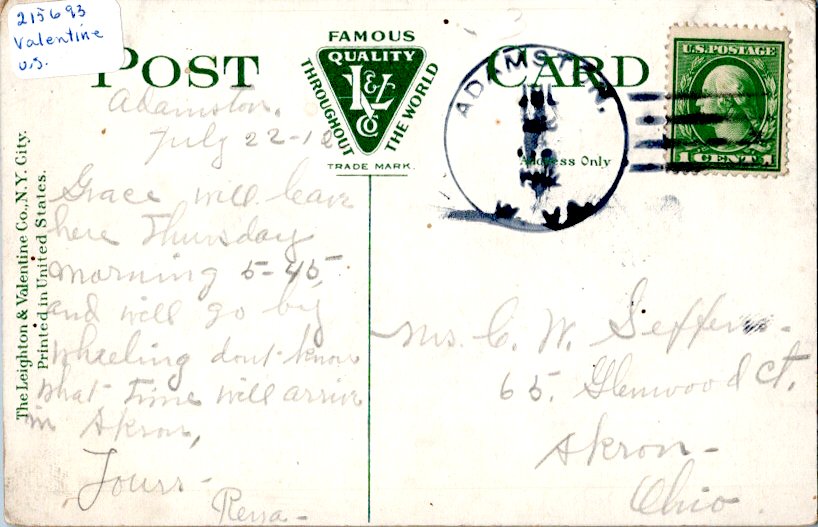 215693
Valentine
U.S.
POST CARD
FAMOUS
QUALITY
L & V
Co
THROUGHOUT
THE WORLD
TRADE MARK.
Address Only
ADAMSTON,
U.S. POSTAGE
1 CENT 1
The Leighton & Valentine Co., N.Y. City.
Printed in United States.
Adamston,
July 22-12
Grace will leave
here Thursday
morning 5-45,
and will go by
Wheeling dont know
what time will arrive
in Akron,
Yours-
Mrs. C. W.
65. Glenwood Ct.
Akron-
Ohio.